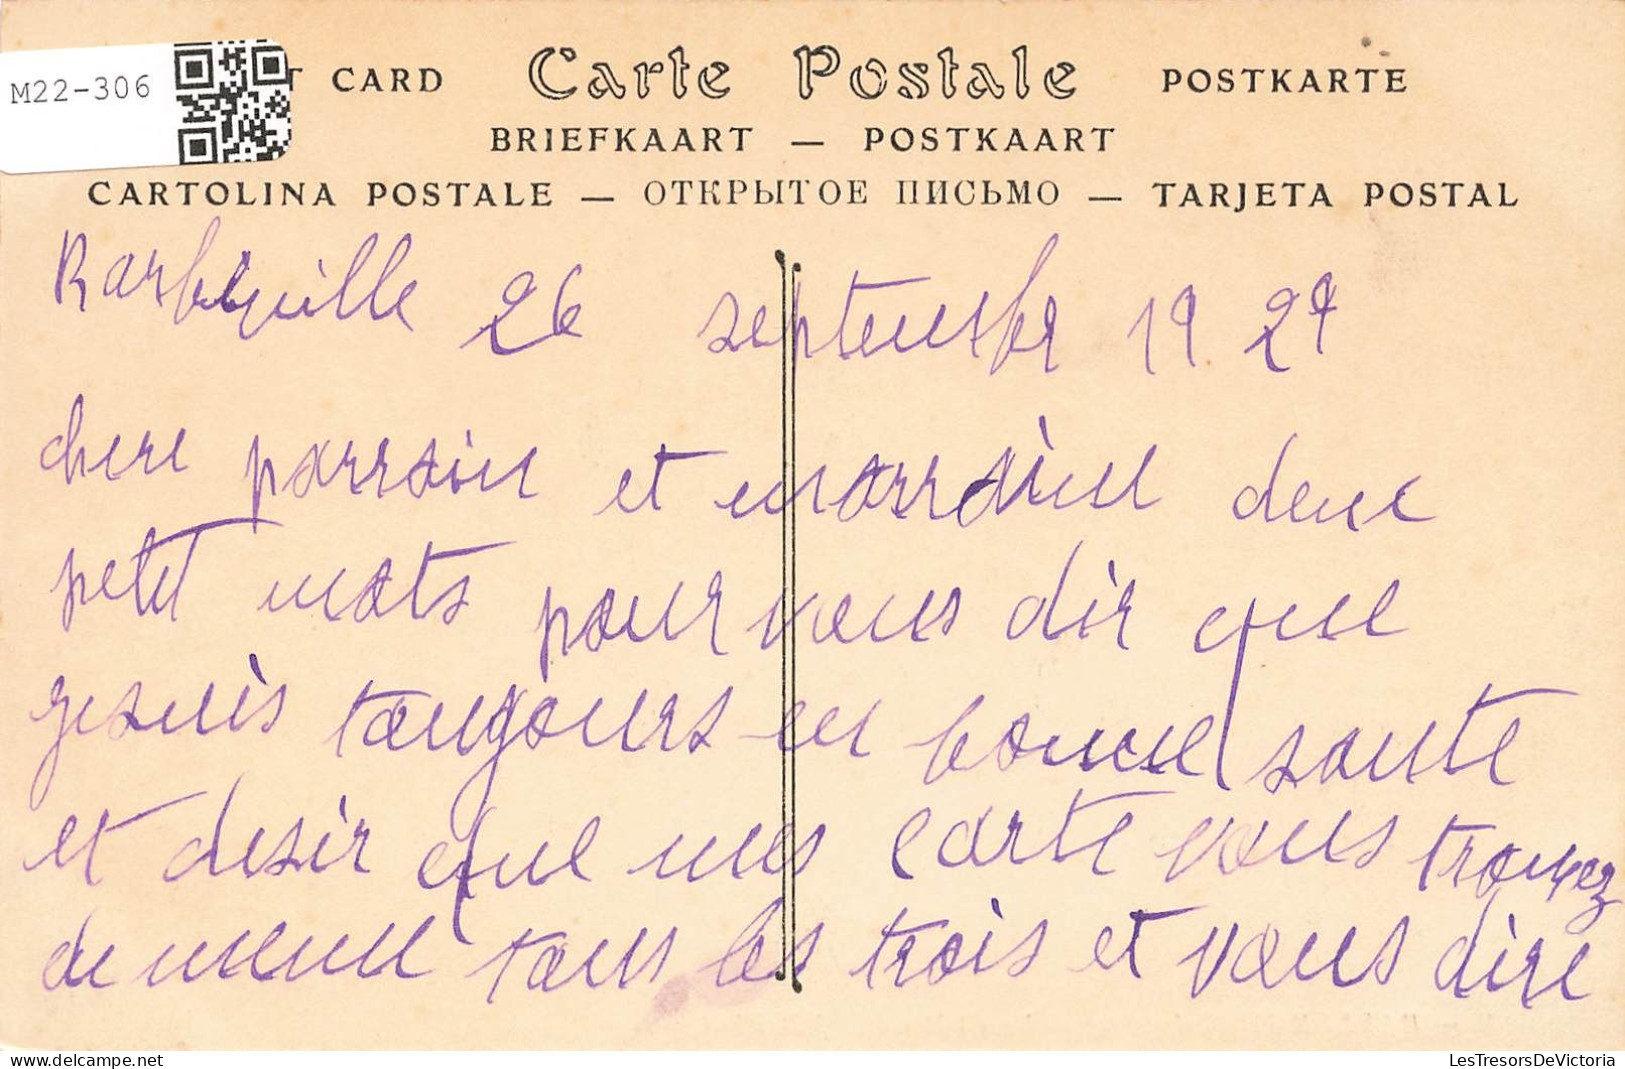 M22-306
T CARD Carte Postale POSTKARTE
BRIEFKAART — POSTKAART
CARTOLINA POSTALE — ОТКРЫТОЕ ПИСЬМО — TARJETA POSTAL
26 septembre 19 29
chere parrain et marraine deux
petit mots pour vous dir que
je suis toujours en bonne sante
et desir que mes carte vous trouvez
de meme tous les trois et vous dire
delcampe.net
LesTresorsDeVictoria